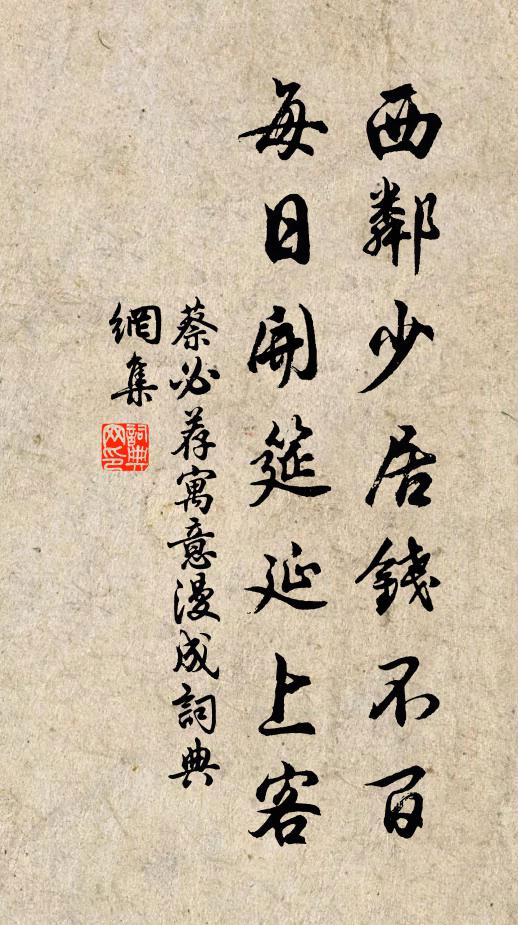 西鄰少居錢不百
每日開筵延上客
蔡必荐寓意漫成詞典
網集
詞典
网印